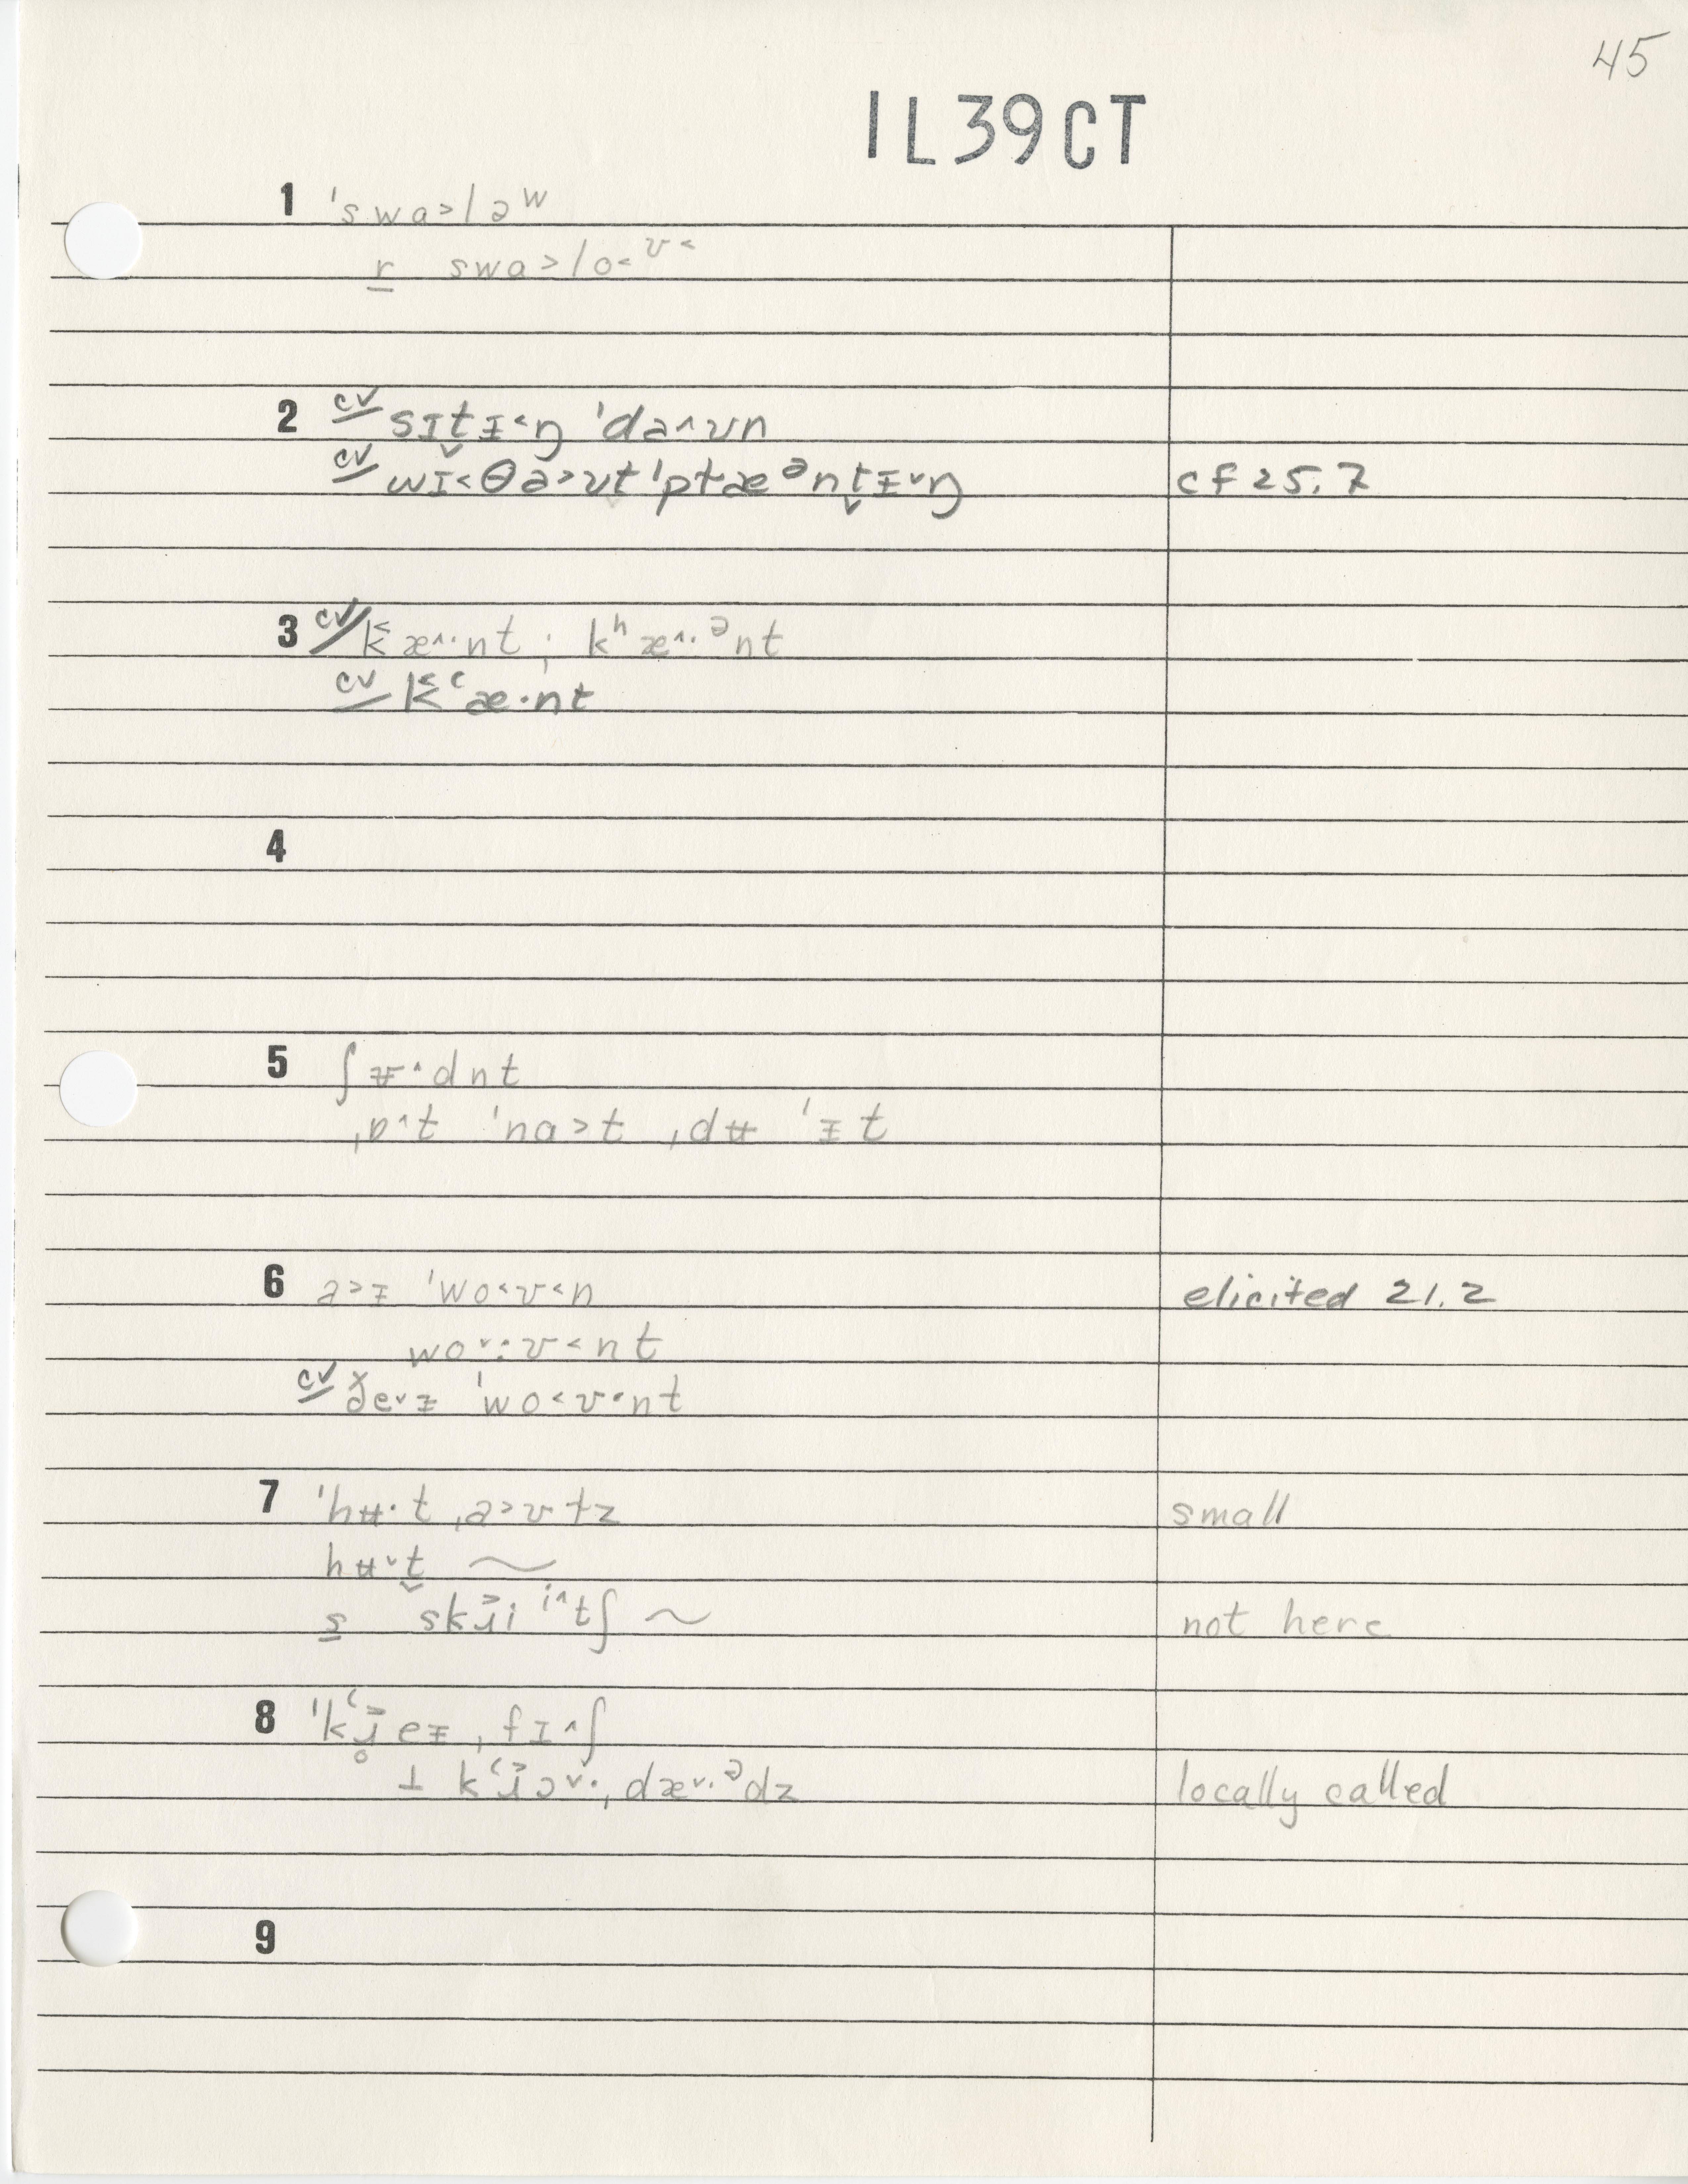 45
1L39CT
1 'swa>lə^w
r swa>lo<^ʊ<
2 cv sɪt̬ᵻ<ŋ 'da^ʊn
cv wɪ<θa>ʊt 'pɫæ^ənt̬ᵻ˅ŋ cf 25.7
3 cv k̛æ^·nt ; k^hæ^·^ənt
cv k̛^cæ·nt
4
5 ʃᵿ^dnt
ˌɒ^t 'na>t ˌdʉ 'ᵻt
6 a>ᵻ 'wo<ʊ<n elicited 21.2
wo˅:ʊ<nt
cv ðe˅ᵻ 'wo<ʊ·nt
7 'hʉ·t ˌa>ʊɫz small
hʉ˅t̬ ~
s skɹi^i^tʃ ~ not here
8 'k‘ɹ̥eᵻ ˌfɪ^ʃ
⊥ k‘ɹɔ˅· ˌdæ˅·^ədz locally called
9